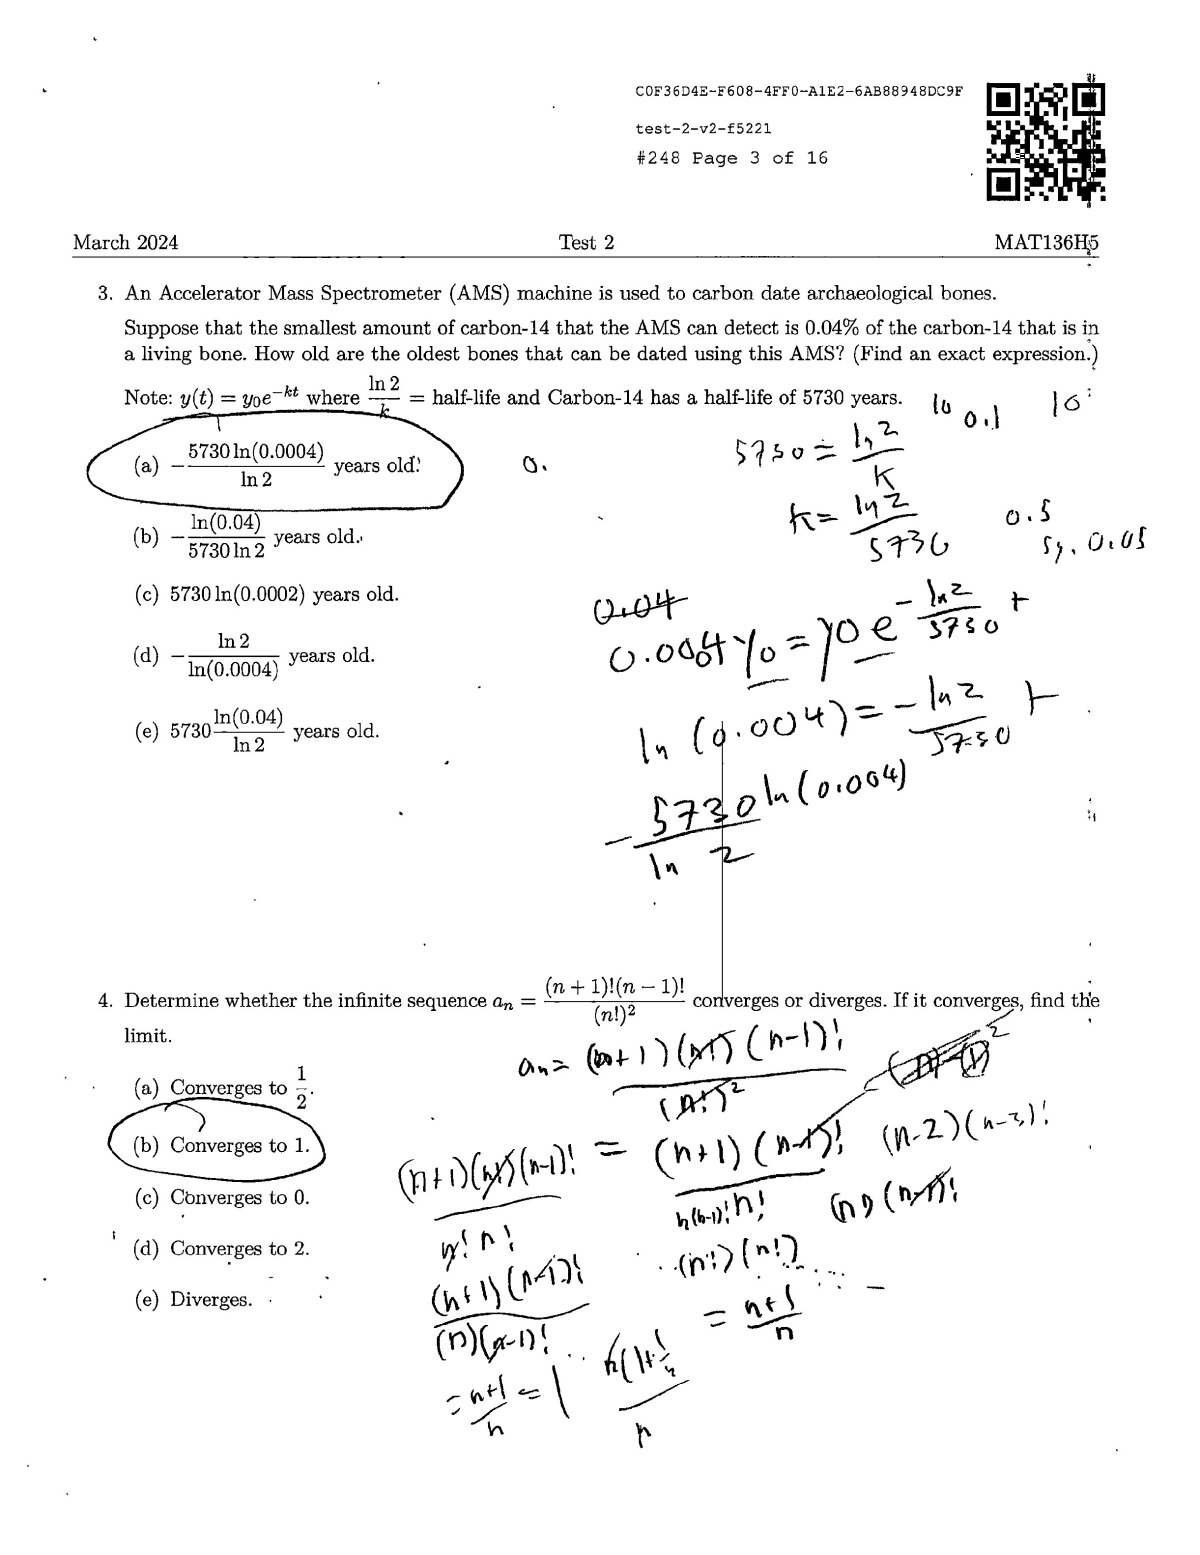 C0F36D4E-F608-4FF0-A1E2-6AB88948DC9F
test-2-v2-f5221
#248 Page 3 of 16
March 2024 Test 2 MAT136H5
3. An Accelerator Mass Spectrometer (AMS) machine is used to carbon date archaeological bones.
Suppose that the smallest amount of carbon-14 that the AMS can detect is 0.04% of the carbon-14 that is in
a living bone. How old are the oldest bones that can be dated using this AMS? (Find an exact expression.)
Note: y(t) = y₀e^{-kt} where \frac{ln 2}{k} = half-life and Carbon-14 has a half-life of 5730 years.
10 0.1 10
(a) -\frac{5730 ln(0.0004)}{ln 2} years old.
0.
5730 = \frac{ln 2}{K}
(b) -\frac{ln(0.04)}{5730 ln 2} years old.
K = \frac{ln 2}{5730}
0.5
5%. 0.05
(c) 5730 ln(0.0002) years old.
0.04
(d) -\frac{ln 2}{ln(0.0004)} years old.
y0 = y0 e^{-\frac{ln 2}{5730} t}
(e) 5730\frac{ln(0.04)}{ln 2} years old.
ln (0.004) = -\frac{ln 2}{5730} t
-\frac{5730 ln(0.004)}{ln 2}
4. Determine whether the infinite sequence aₙ = \frac{(n + 1)!(n − 1)!}{(n!)²} converges or diverges. If it converges, find the
limit.
an = \frac{(n+1)(n!)(n-1)!}{(n!)²}
(a) Converges to \frac{1}{2}.
(b) Converges to 1.
\frac{(n+1)(n!)(n-1)!}{n! n!} = \frac{(n+1)(n-1)!}{n(n-1)! n!} (n-2)(n-3)!
(n)(n-1)!
(c) Converges to 0.
(d) Converges to 2.
(n!)(n!)
\frac{(n+1)(n-1)!}{(n)(n-1)!}
(e) Diverges.
= \frac{n+1}{n}
= \frac{n+1}{n} = 1
\frac{n(1+\frac{1}{n}}{n}